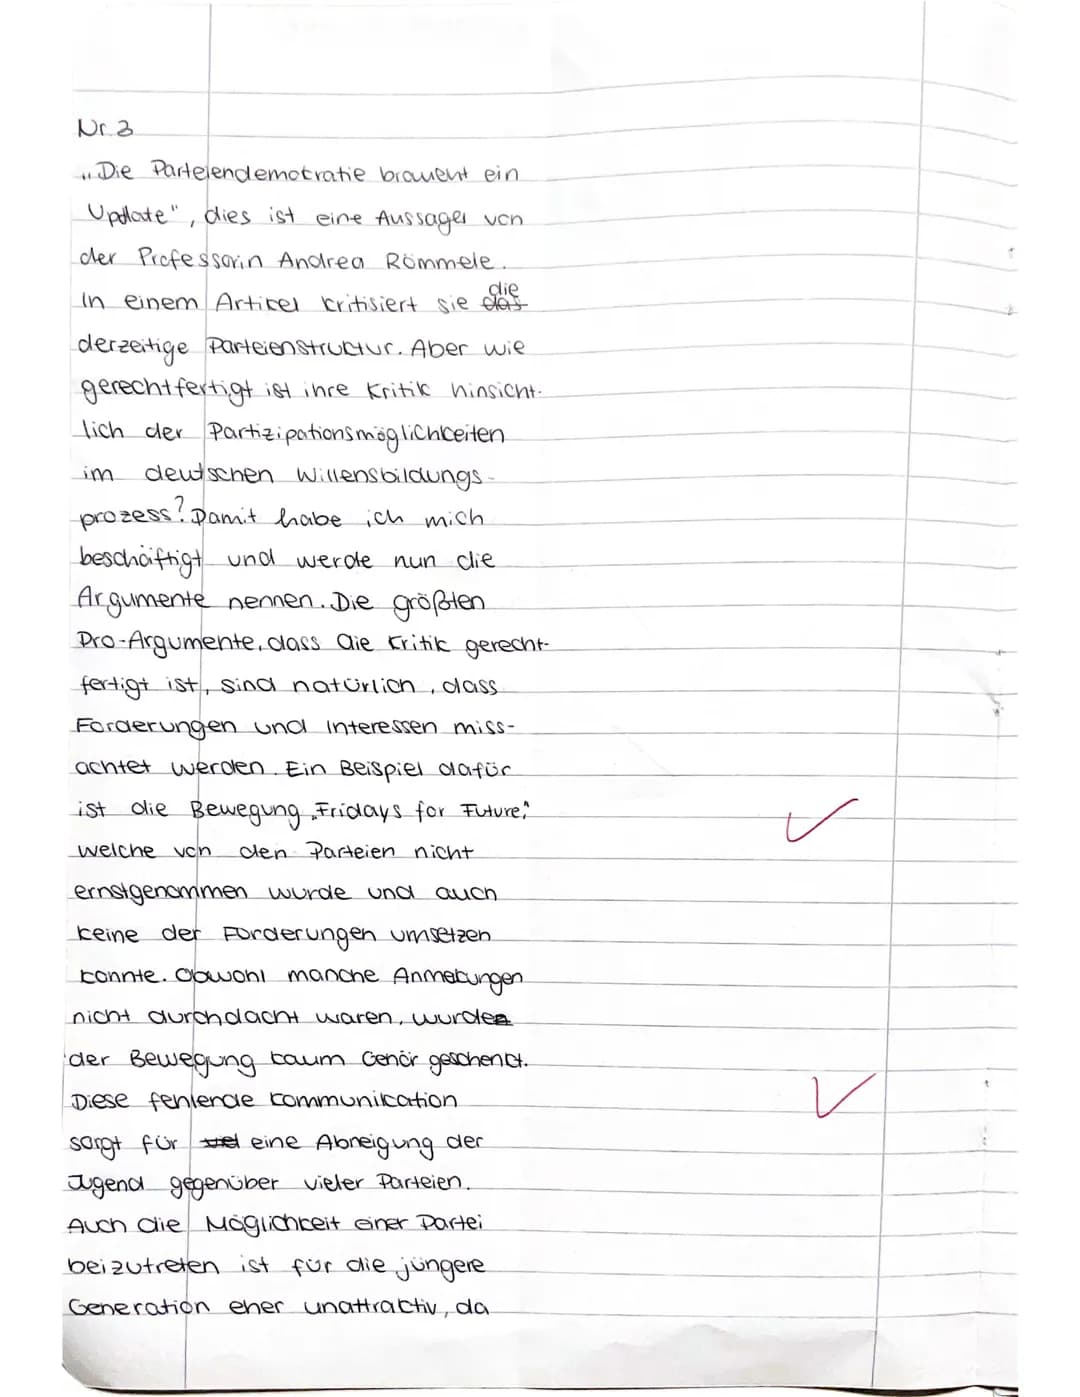 Nr. 3
„Die Parteiendemokratie braucht ein
Update", dies ist eine Aussage von
der Professorin Andrea Römmele.
In einem Artikel kritisiert sie die
derzeitige Parteienstruktur. Aber wie
gerechtfertigt ist ihre Kritik hinsicht-
lich der Partizipationsmöglichkeiten
im deutschen Willensbildungs-
prozess? Damit habe ich mich
beschäftigt und werde nun die
Argumente nennen. Die größten
Pro-Argumente, dass die Kritik gerecht-
fertigt ist, sind natürlich, dass
Forderungen und Interessen miss-
achtet werden. Ein Beispiel dafür
ist die Bewegung „Fridays for Future",
welche von den Parteien nicht
ernstgenommen wurde und auch
keine der Forderungen umsetzen
konnte. Obwohl manche Anmerkungen
nicht durchdacht waren, wurde
der Bewegung kaum Gehör geschenkt.
Diese fehlende Kommunikation
sorgt für eine Abneigung der
Jugend gegenüber vieler Parteien.
Auch die Möglichkeit einer Partei
beizutreten ist für die jüngere
Generation eher unattractiv, da